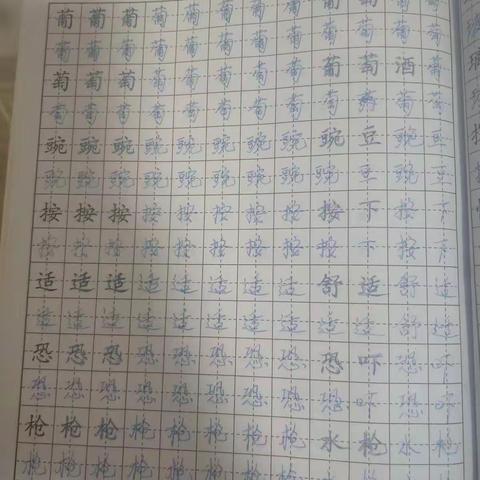 葡葡葡葡葡葡葡葡葡葡葡葡
葡葡葡葡葡葡葡葡葡葡葡葡
萄萄萄萄萄萄萄萄葡萄酒葡
萄萄萄萄萄萄萄萄葡萄酒葡
豌豌豌豌豌豌豌豌豌豆豌豆
豌豌豌豌豌豌豌豌豌豆豌豆
按按按按按按按按按下按下
按按按按按按按按按下按下
适适适适适适适适舒适舒适
适适适适适适适适适适舒适
恐恐恐恐恐恐恐恐恐吓恐吓
恐恐恐恐恐恐恐恐恐吓恐吓
枪枪枪枪枪枪枪枪水枪水枪
枪枪枪枪枪枪枪枪水枪水枪